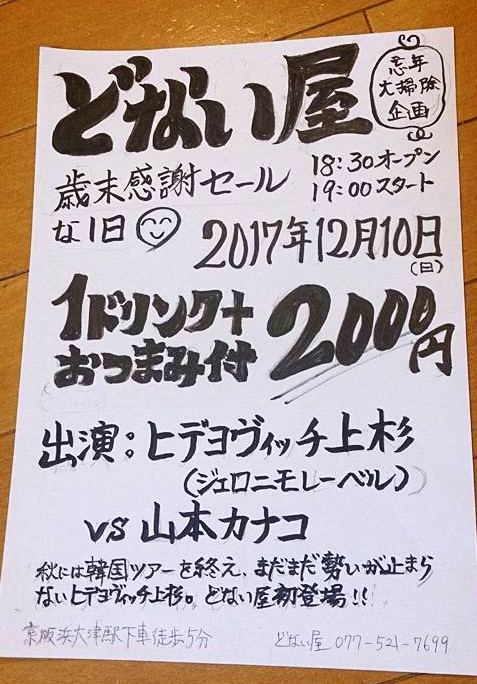 どない屋
忘年
大掃除
企画
歳末感謝セール
な1日
18:30オープン
19:00スタート
2017年12月10日
(日)
1ドリンク+
おつまみ付
2000円
出演:ヒデヨヴィッチ上杉
(ジェロニモレーベル)
vs 山本カナコ
秋には韓国ツアーを終え、まだまだ勢いが止まら
ないヒデヨヴィッチ上杉。どない屋初登場!!
京阪浜大津駅下車徒歩5分
どない屋 077-521-7699